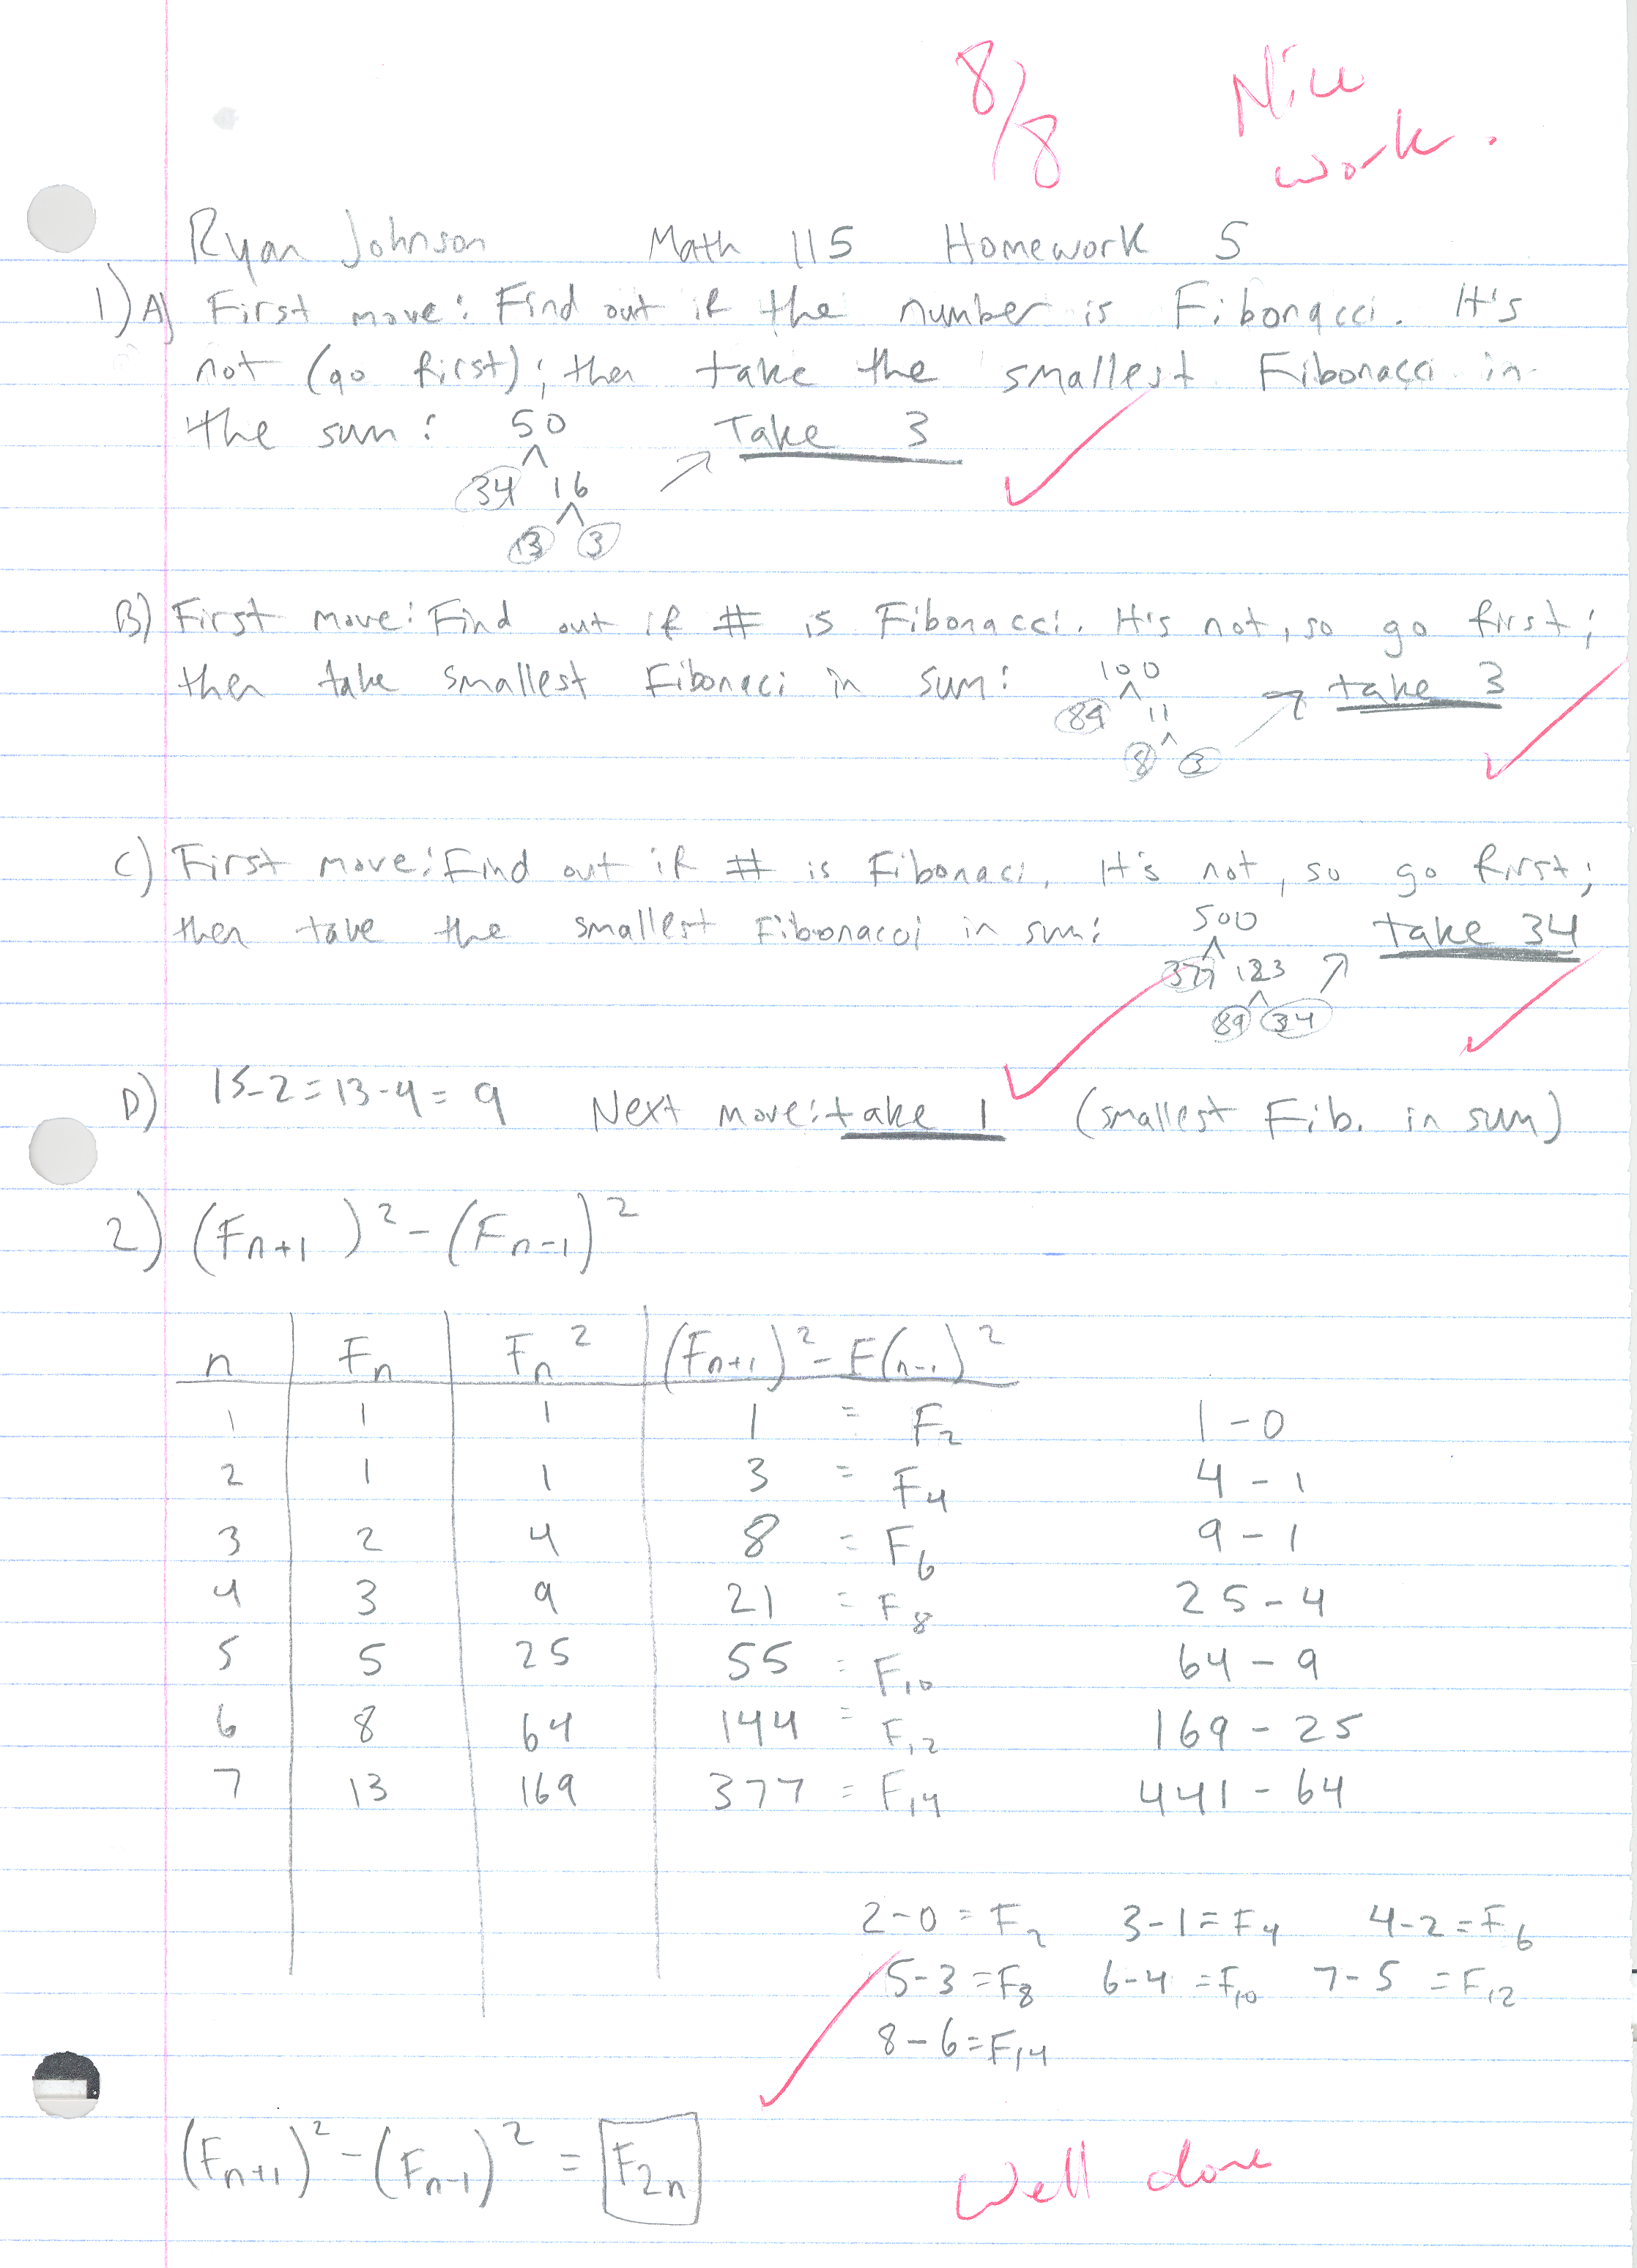 8/8 Nice work.
Ryan Johnson Math 115 Homework 5
1) A) First move: Find out if the number is Fibonacci. It's
not (go first); then take the smallest Fibonacci in
the sum: 50 Take 3
34 16
13 3
B) First move: Find out if # is Fibonacci. It's not, so go first;
then take smallest Fibonaci in sum: 100 take 3
89 11
8 3
C) First move: Find out if # is Fibonaci. It's not, so go first;
then take the smallest Fibonacci in sum: 500 take 34
377 123
89 34
D) 15-2=13-4=9 Next move: take 1 (smallest Fib. in sum)
2) (Fn+1)² - (Fn-1)²
n Fn Fn² (Fn+1)² - F(n-1)²
1 1 1 1 = F2 1-0
2 1 1 3 = F4 4-1
3 2 4 8 = F6 9-1
4 3 9 21 = F8 25-4
5 5 25 55 = F10 64-9
6 8 64 144 = F12 169-25
7 13 169 377 = F14 441-64
2-0=F2 3-1=F4 4-2=F6
5-3=F8 6-4=F10 7-5=F12
8-6=F14
(Fn+1)² - (Fn-1)² = F2n
Well done